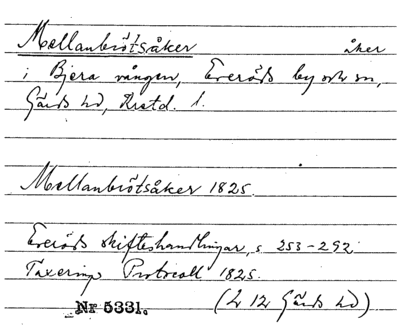 Mellanbrötsåker åker
i Bjera vången, Everöds by och sn,
Gärds hd, Krstd. l.
Mellanbrötsåker 1825.
Everöds skifteshandlingar, s 253-292
Taxerings Protocoll 1825.
Nr 5331. (L 12 Gärds hd)